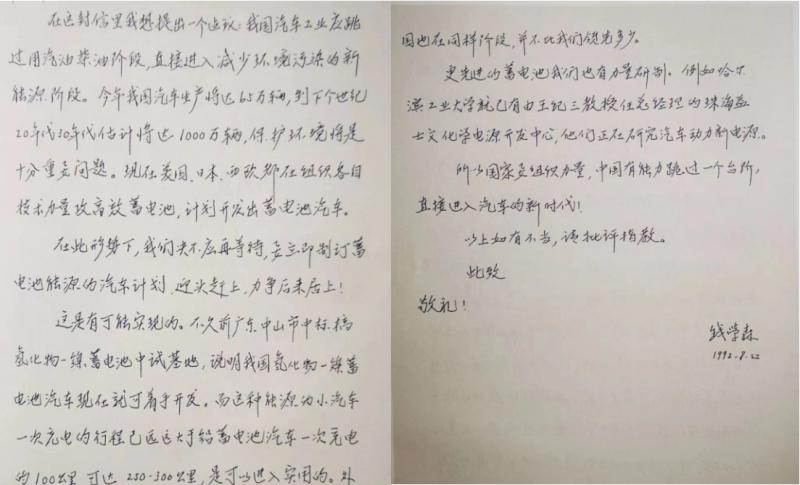 在这封信里我想提出一个建议：我国汽车工业应跳
过用汽油柴油阶段，直接进入减少环境污染的新
能源阶段。今年我国汽车生产将达65万辆，到下个世纪
20年代30年代估计将达1000万辆，保护环境将是
十分重要问题。现在美国、日本、西欧都在组织各自
技术力量攻高效蓄电池，计划开发出蓄电池汽车。
在此形势下，我们决不应再等待，要立即制订蓄
电池能源的汽车计划，迎头赶上，力争后来居上！
这是有可能实现的。不久前广东中山市中标搞
氢化物-镍蓄电池中试基地，说明我国氢化物-镍蓄
电池汽车现在就可着手开发。而这种能源的小汽车
一次充电的行程已远远大于铅蓄电池汽车一次充电
的100公里，可达250-300公里，是可以进入实用的。外
国也在同样阶段，并不比我们领先多少。
更先进的蓄电池我们也有力量研制。例如哈尔
滨工业大学就已有由王纪三教授任总经理的珠海益
士文化学电源开发中心，他们正在研究汽车动力新电源。
所以国家要组织力量，中国有能力跳过一个台阶，
直接进入汽车的新时代！
以上如有不当，请批评指教。
此致
敬礼！
钱学森
1992.8.22